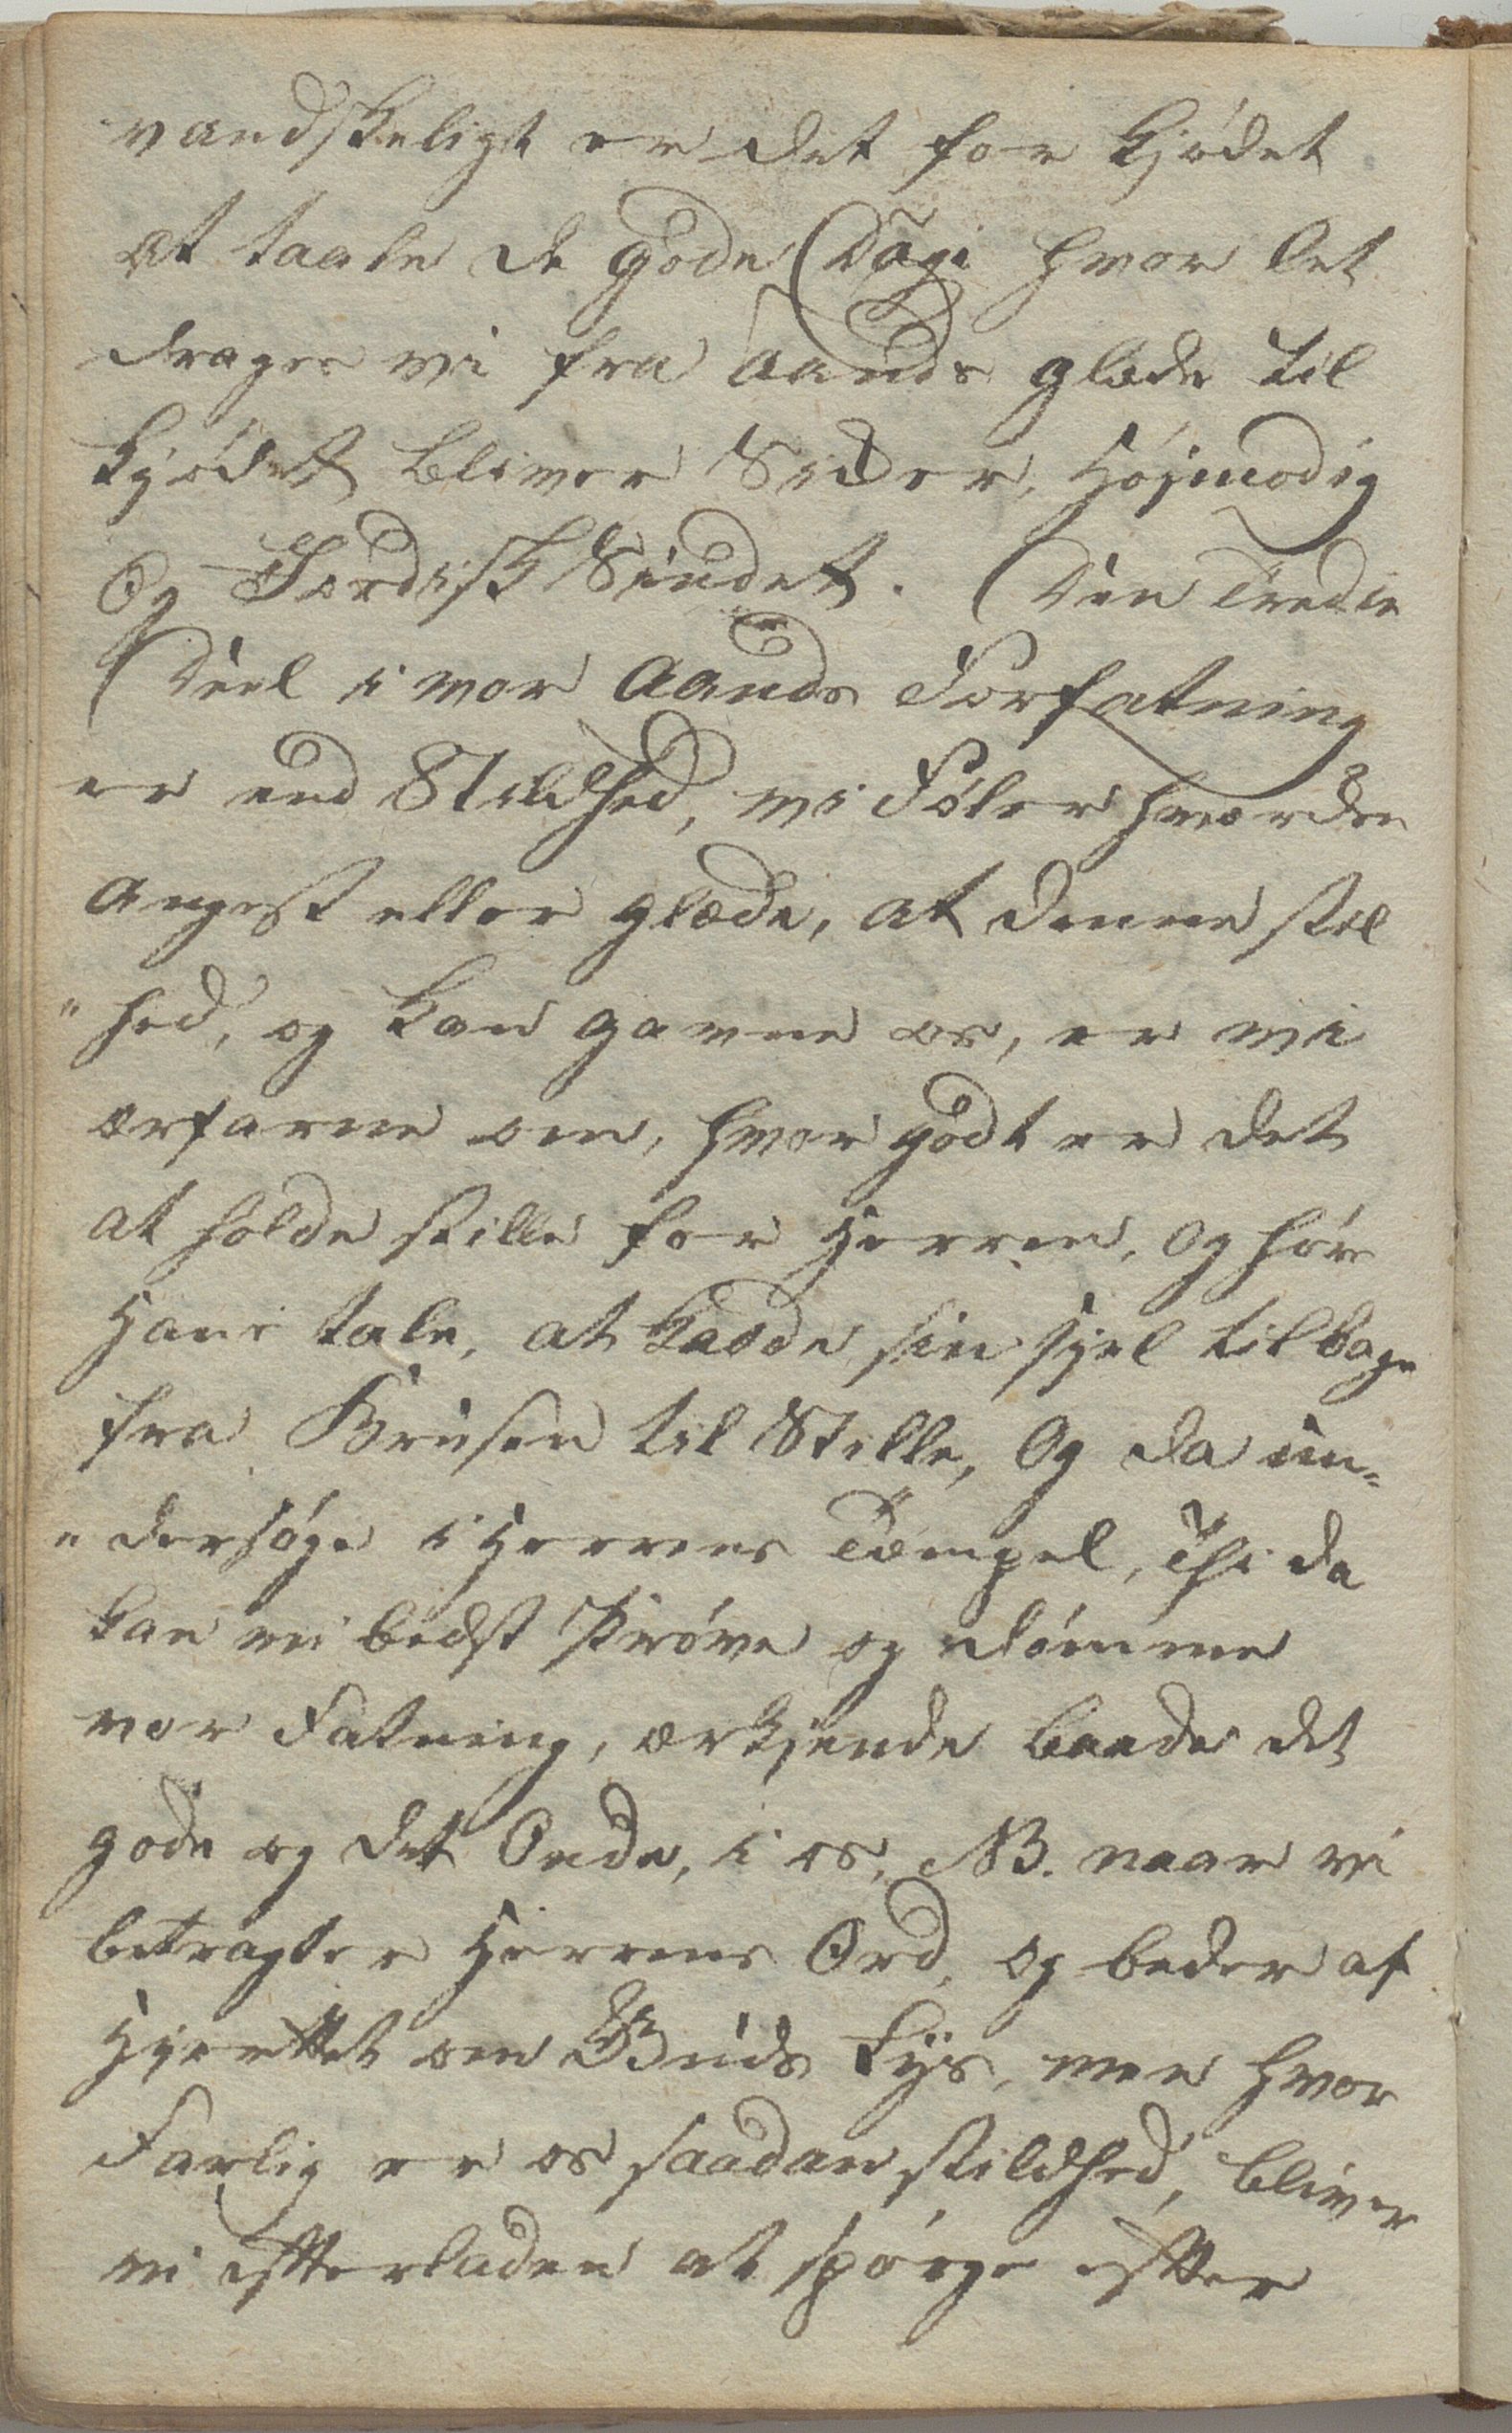 vandskeligt er det for Kjødet
at taale de gode Dage hvor let
drages vi fra Aands glæde til
Kjødet bliver Sider, Højmodig
Og Jordisk Sindet. Den Tredie
Deel i vor Aands Forfatning
er end Stildhed, vi Føler hverden
Angest eller glæde, at denne stil
"hed, og kan gavne os, er vi
ærfarne om, hvor godt er det
at holde stille for Herren, og høre
Hans tale, at kalde sin sjel tilbage
fra Brusen til Stille, Og da un„
„dersøge i Herrens Tempel, Thi da
kan vi bedst Prøve og dømme
vor Fatning, ærkjende baade det
gode og det Onde, i os, NB. naar vi
betragter Herrens Ord, og beder af
Hjerttet om Guds Lys, men hvor
Farlig er os saadan stildhed, bliver
vi efterladen at spørge efter